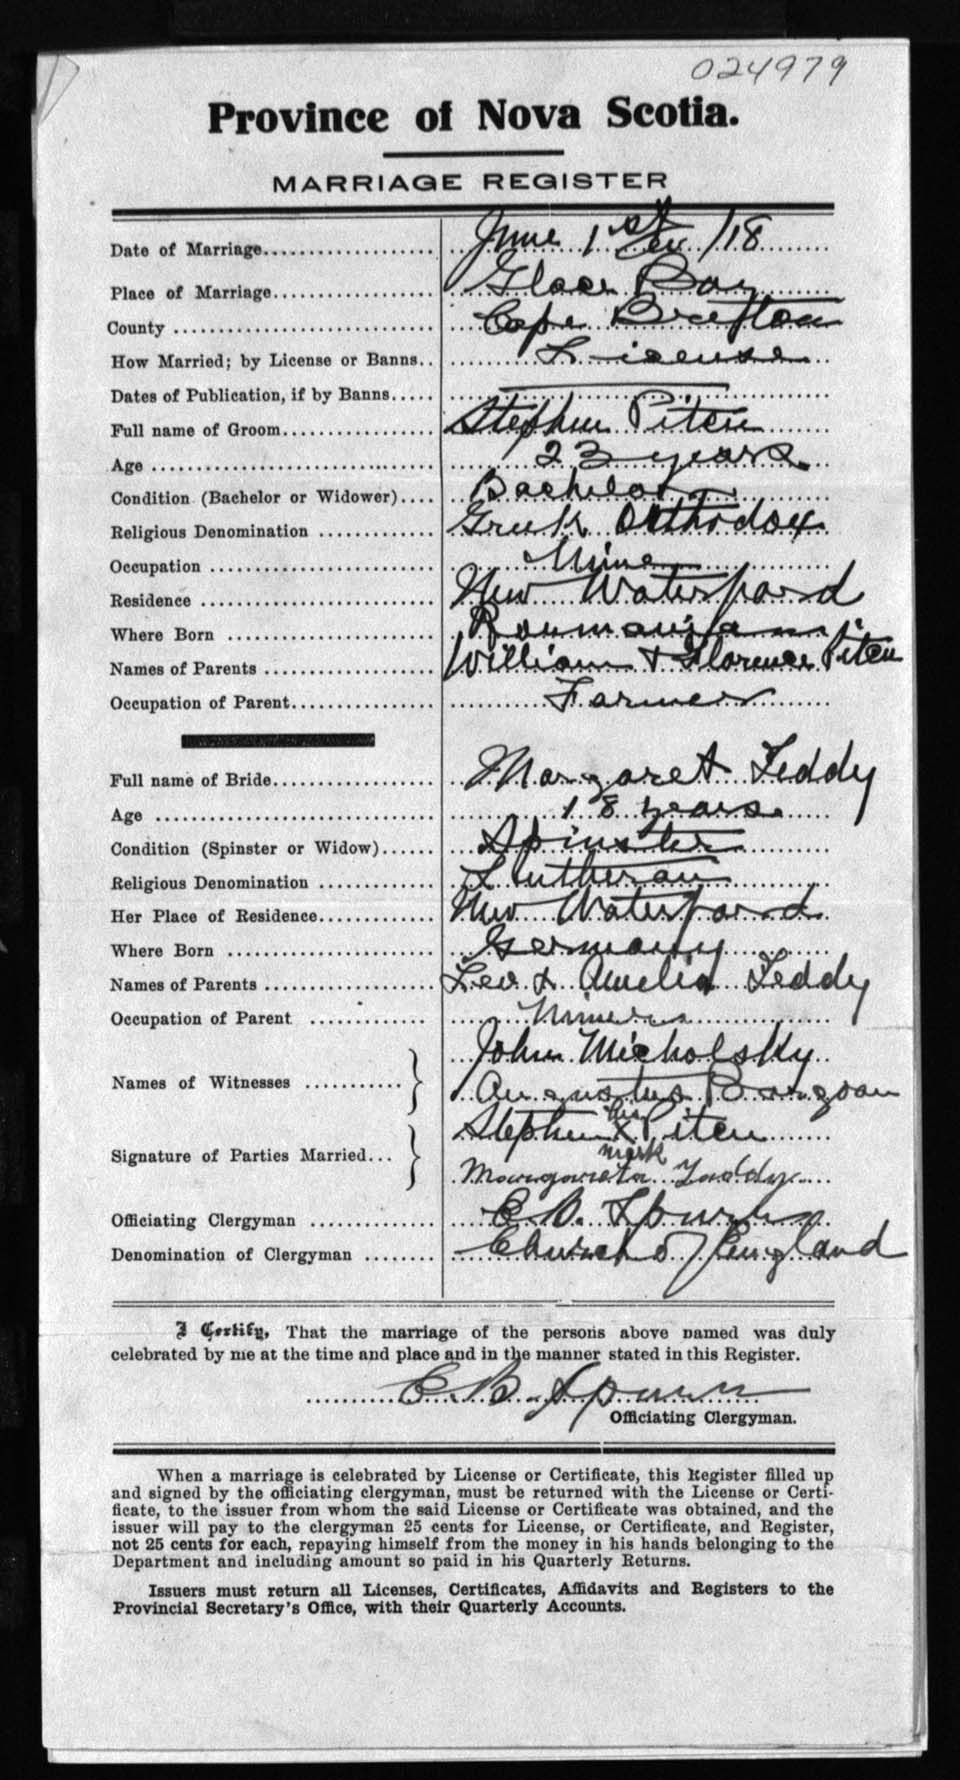 024979
Province of Nova Scotia.
MARRIAGE REGISTER
Date of Marriage.................... June 1st /18
Place of Marriage................... Glace Bay
County .............................. Cape Bretton
How Married; by License or Banns.. License
Dates of Publication, if by Banns.....
Full name of Groom.................. Stephen Piten
Age ................................. 23 years
Condition (Bachelor or Widower).... Bachelor
Religious Denomination ............. Greek Orthodox
Occupation .......................... Miner
Residence ........................... New Waterford
Where Born ......................... Roumania
Names of Parents ................... William & Florence Piten
Occupation of Parent................ Farmer
Full name of Bride.................. Margaret Teddy
Age ................................. 18 years
Condition (Spinster or Widow)...... Spinster
Religious Denomination ............. Lutheran
Her Place of Residence............. New Waterford
Where Born ......................... Germany
Names of Parents ................... Leo & Amelia Teddy
Occupation of Parent ............... Miner
Names of Witnesses ........... } John Micholsky
Augustus
Signature of Parties Married... } Stephen his X mark Piten
Margareta Taddy
Officiating Clergyman .............. E. B. Spurr
Denomination of Clergyman ........ Church of England
I Certify, That the marriage of the persons above named was duly
celebrated by me at the time and place and in the manner stated in this Register.
E. B. Spurr
Officiating Clergyman.
When a marriage is celebrated by License or Certificate, this Register filled up
and signed by the officiating clergyman, must be returned with the License or Certi-
ficate, to the issuer from whom the said License or Certificate was obtained, and the
issuer will pay to the clergyman 25 cents for License, or Certificate, and Register,
not 25 cents for each, repaying himself from the money in his hands belonging to the
Department and including amount so paid in his Quarterly Returns.
Issuers must return all Licenses, Certificates, Affidavits and Registers to the
Provincial Secretary's Office, with their Quarterly Accounts.